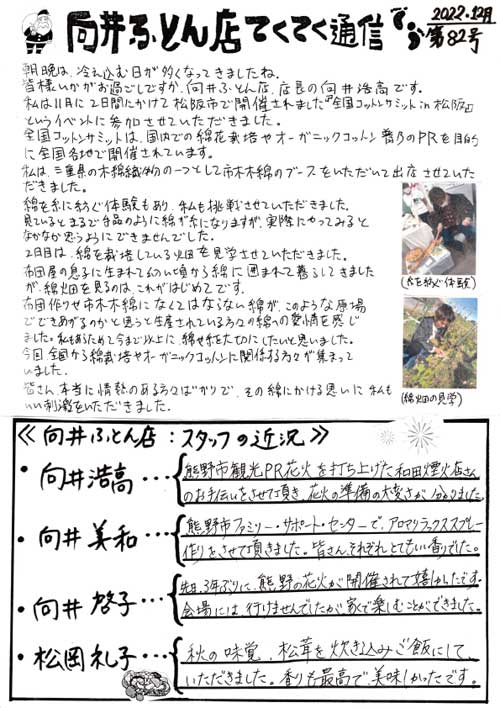 2022.12月
向井ふとん店てくてく通信 第82号
朝晩は、冷え込む日が多くなってきましたね。
皆様いかがお過ごしですか、向井ふとん店、店長の向井浩高です。
私は11月に2日間にかけて松阪市で開催されました『全国コットンサミットin松阪』
というイベントに参加させていただきました。
全国コットンサミットは、国内での綿花栽培やオーガニックコットン普及のPRを目的
に全国各地で開催されています。
私は、三重県の木綿織物の一つとして市木木綿のブースをいただいて出店させていた
だきました。
綿を糸に紡ぐ体験もあり、私も挑戦させていただきました。
見ているとまるで手品のように綿が糸になりますが、実際にやってみると
なかなか思うようにできませんでした。
2日目は、綿を栽培している畑を見学させていただきました。
布団屋の息子に生まれて幼い頃から綿に囲まれて暮らしてきました
が、綿畑を見るのは、これがはじめてです。
布団作りや市木木綿になくてはならない綿が、このような原場
でできあがるのかと思うと生産されている方々の綿への愛情を感じ
ました。私もあらためて今まで以上に、綿や糸を大切にしたいと思いました。
今回全国から綿栽培やオーガニックコットンに関係する方々が集まって
いました。
皆さん、本当に情熱のある方々ばかりで、その綿にかける思いに私も
いい刺激をいただきました。
(糸を紡ぐ体験)
(綿畑の見学)
≪向井ふとん店：スタッフの近況≫
・向井浩高…{熊野市観光PR花火を打ち上げた和田煙火店さん
のお手伝いをさせて頂き、花火の準備の大変さが分かりました。
・向井美和…{熊野市ファミリー・サポート・センターで、アロマリラックススプレー
作りをさせて頂きました。皆さん、それぞれとてもいい香りでした。
・向井啓子…{先日、3年ぶりに、熊野の花火が開催されて嬉しかったです。
会場には行けませんでしたが家で楽しむことができました。
・松岡礼子…{秋の味覚、松茸を炊き込みご飯にして、
いただきました。香りも最高で美味しかったです。